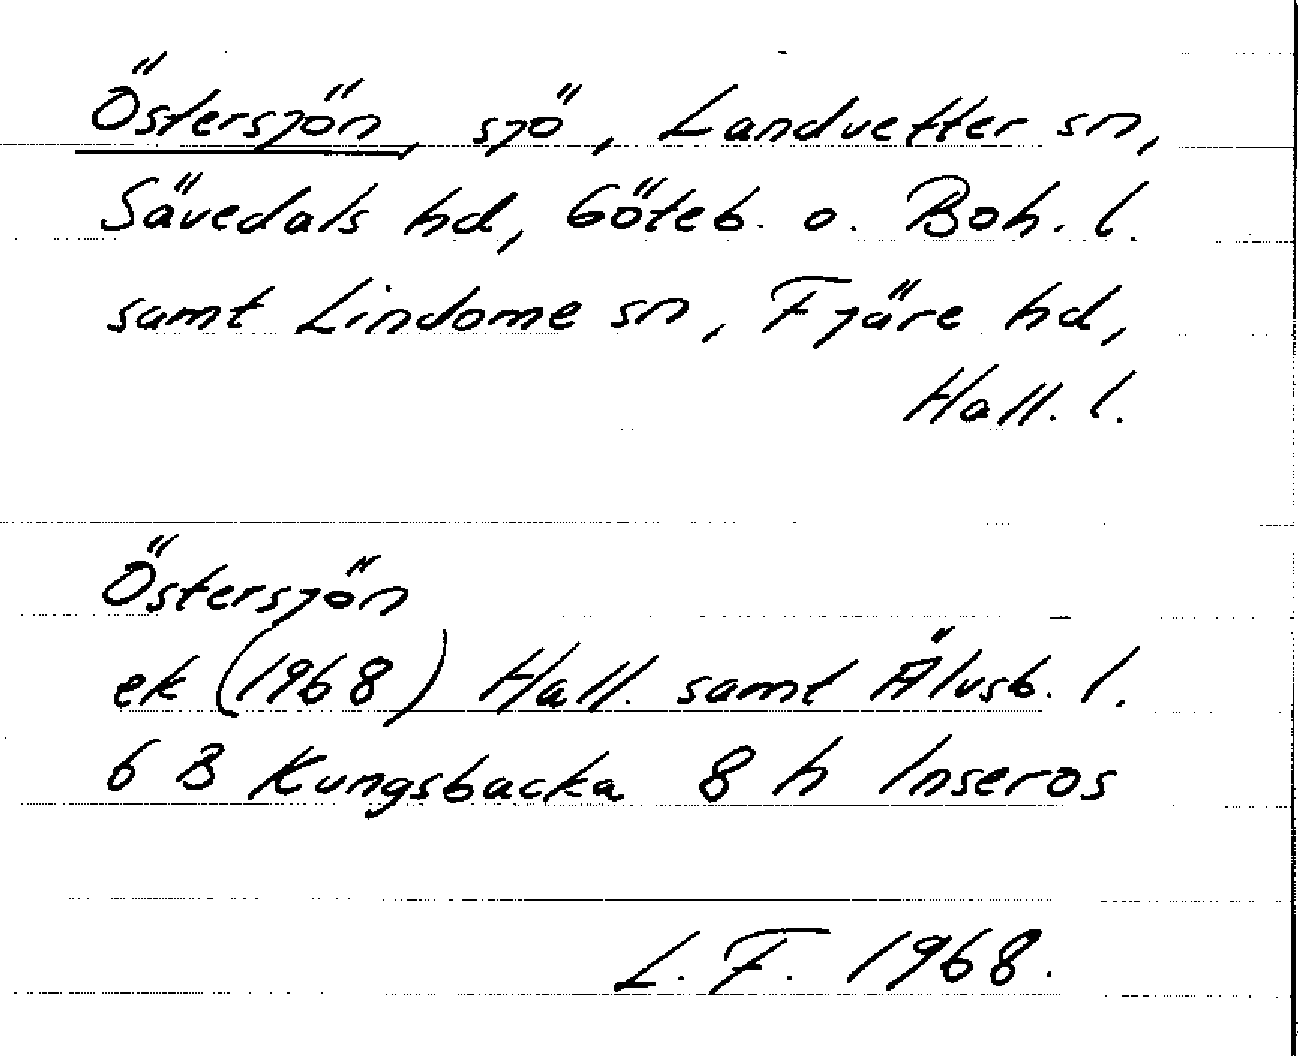 Östersjön, sjö, Landvetter sn,
Sävedals hd, Göteb. o. Boh. l.
samt Lindome sn, Fjäre hd,
Hall. l.
Östersjön
ek (1968) Hall. samt Älvsb. l.
6 B Kungsbacka 8 h Inseros
L. F. 1968.